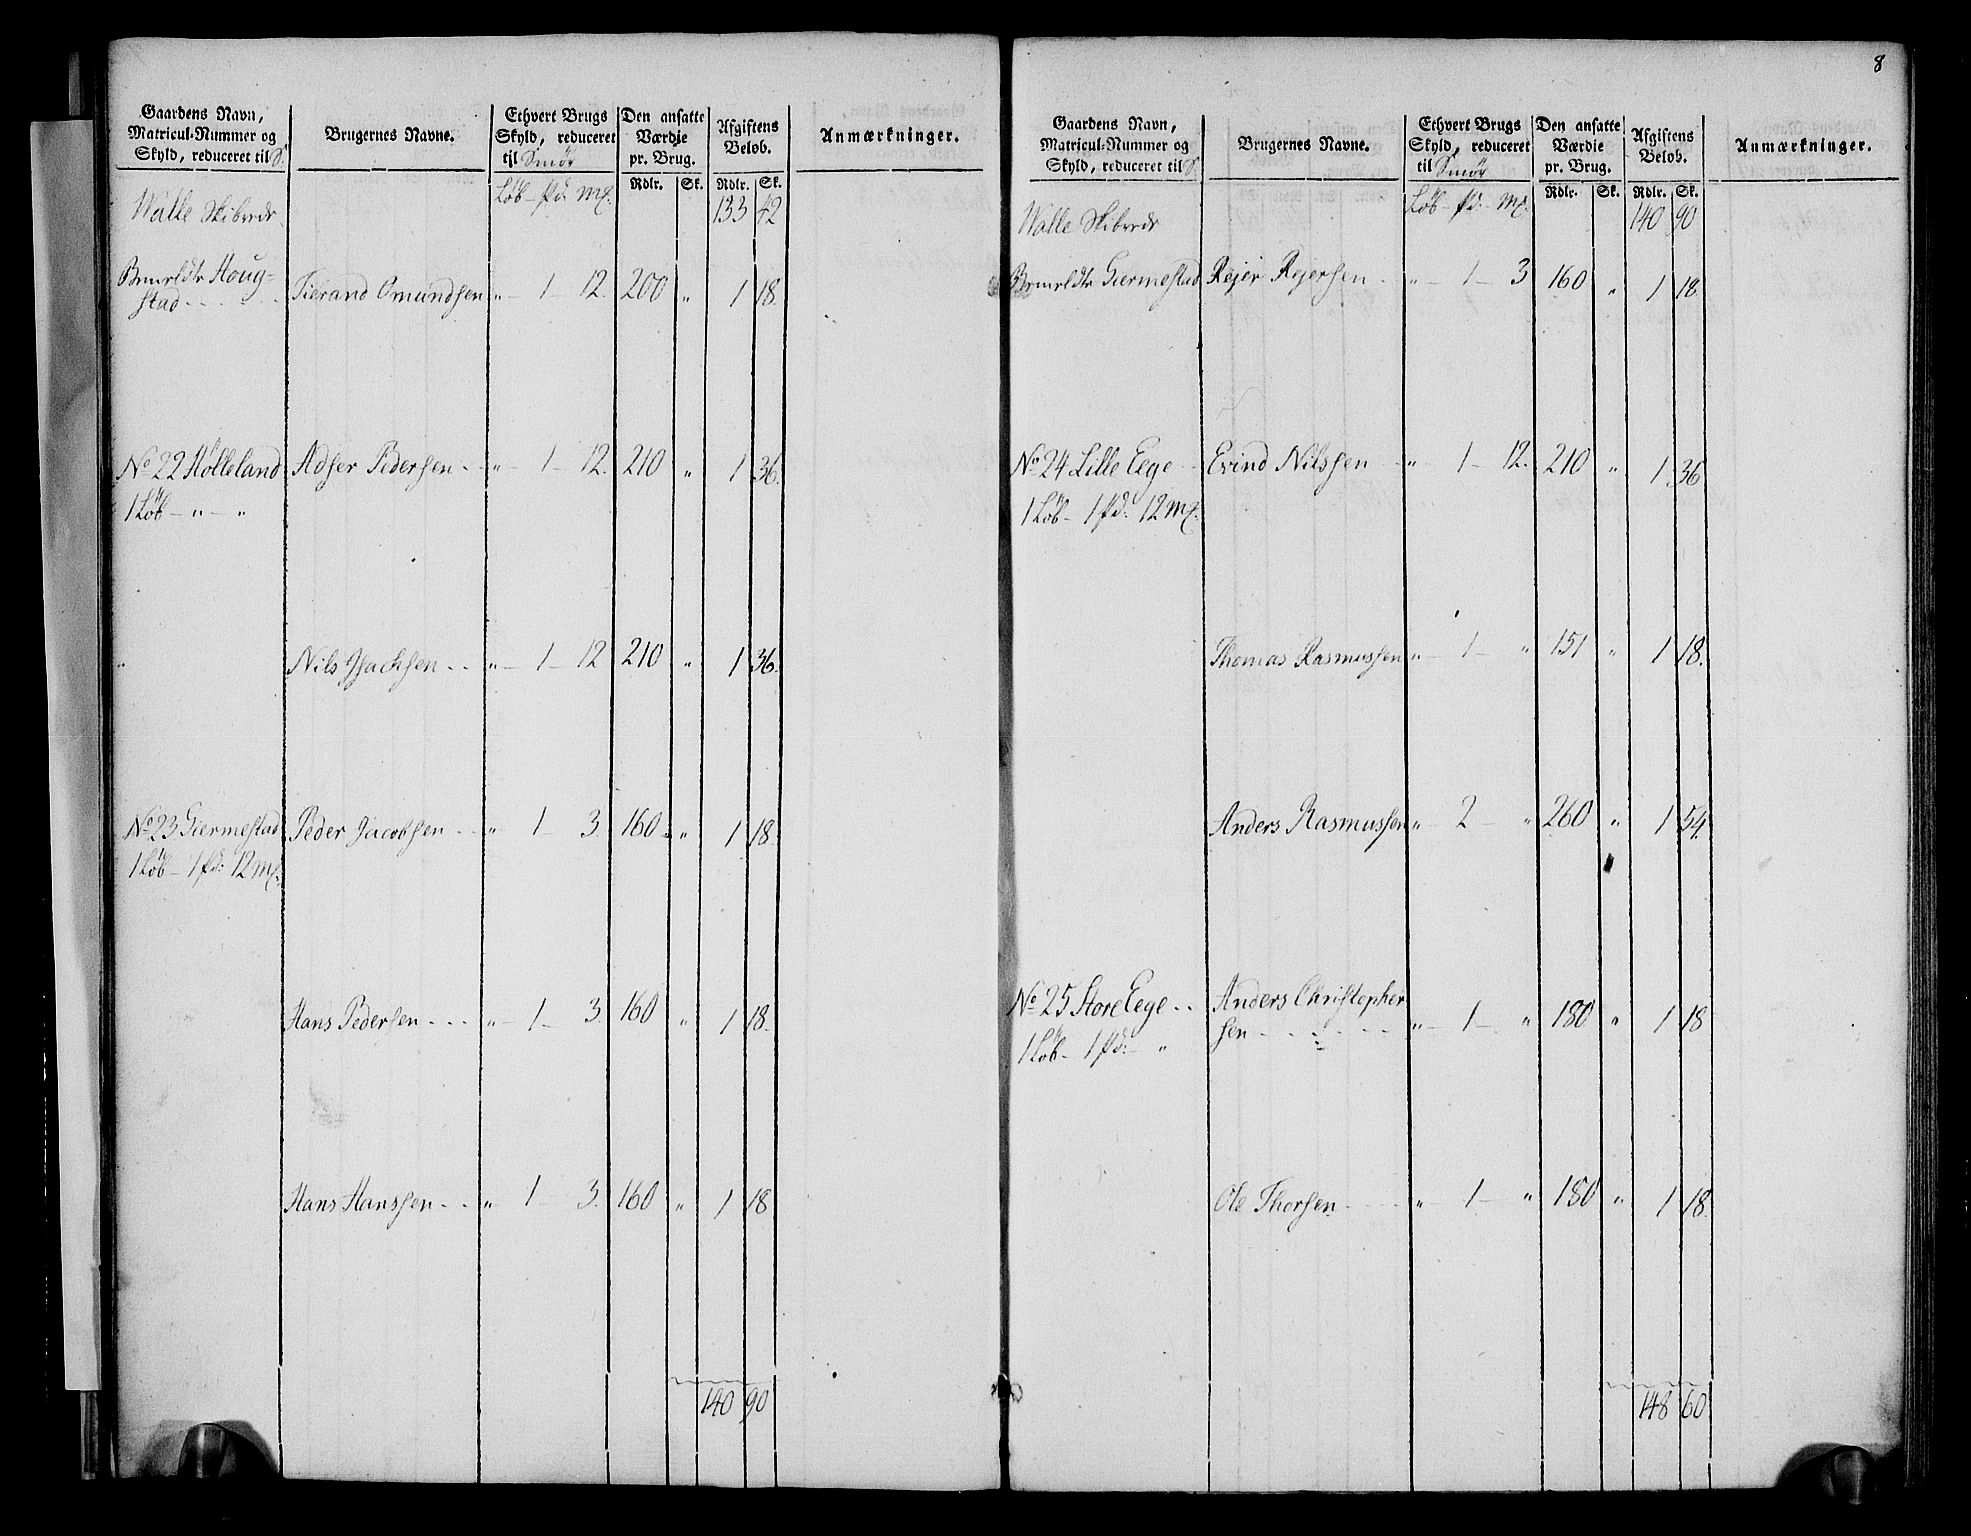 Gaardens Navn, Matricul-Nummer og Skyld, reduceret til S. | Brugernes Navne. | Ethvert Brugs Skyld, reduceret til Smör | Den ansatte Værdie pr. Brug. | Afgiftens Beløb. | Anmærkninger.
Löb - Pd. Mk. | Rdlr. Sk. | Rdlr. Sk.
Walle Skibrede 133 42
Houg-
stad - - - Omundsen „ - 1 - 12. 200 „ 1 18.
No 22 Hölleland Adser Pedersen - - „ - 1 - 12. 210 „ 1 36.
1 Löb - „ - „
„ Nils Isachsen - - „ - 1 - 12 210 „ 1 36.
No 23 Giermestad Peder Jacobsen - - „ 1 3 160 „ 1 18.
1 Löb - 1 Pd: 12 Mk.
Hans Pedersen - - - „ - 1 - 3. 160 „ 1 18.
Hans Hanssen - - „ 1 - 3. 160 „ 1 18
140 90
8
Gaardens Navn, Matricul-Nummer og Skyld, reduceret til S. | Brugernes Navne. | Ethvert Brugs Skyld, reduceret til Smör | Den ansatte Værdie pr. Brug. | Afgiftens Beløb. | Anmærkninger.
Löb - Pd. - Mk. | Rdlr. Sk. | Rdlr. Sk.
Walle Skibrede 140 90
Giermestad Rejer Rejersen - „ - 1 - 3 160 „ 1 18.
No 24 Lille Eege - - Evind Nilssen - „ - 1 - 12. 210 „ 1 36
1 Löb - 1 Pd: 12 Mk.
Thomas Rasmussen „ - 1 - „ 151 „ 1 18.
Anders Rasmussen „ - 2 - „ 260 „ 1 54.
No 25 Store Eege - - Anders Christopher
sen - - - - - „ - 1 - „ 180 „ 1 18
1 Löb - 1 Pd: - „
Ole Thorsen - - - „ - 1 - „ 180 „ 1 18.
148 60